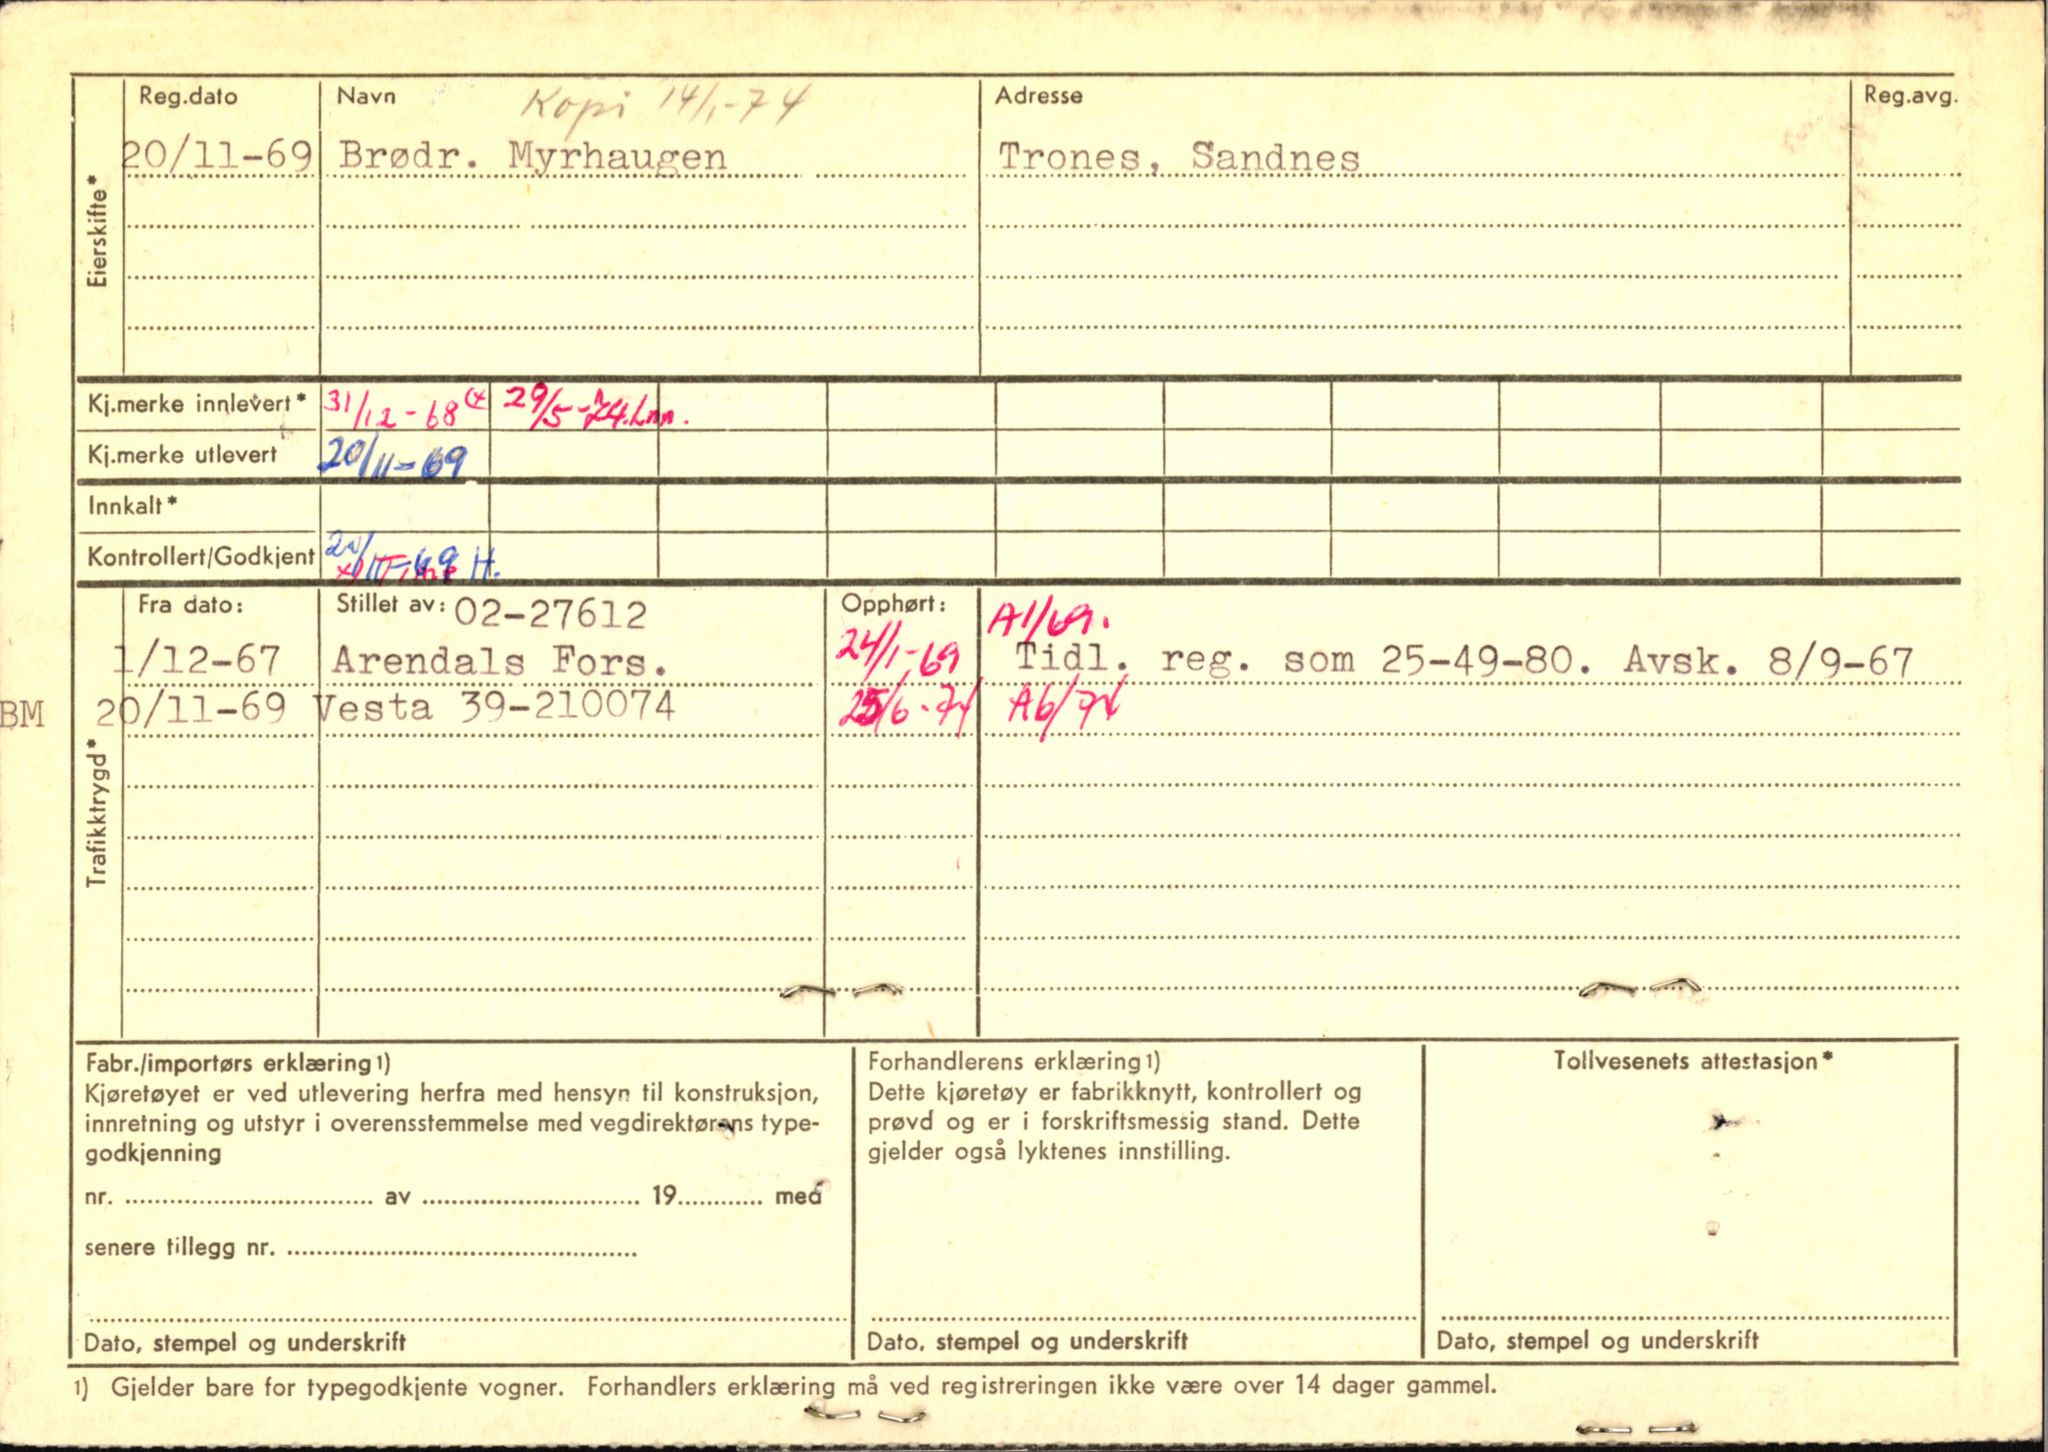 Reg.dato Navn Kopi 14/1-74 Adresse Reg.avg.
20/11-69 Brødr. Myrhaugen Trones, Sandnes
Eierskifte*
Kj.merke innlevert* 31/12-68 29/5-74.
Kj.merke utlevert 20/11-69
Innkalt*
Kontrollert/Godkjent 20/11-69 H.
Fra dato: Stillet av: 02-27612 Opphørt: A1/69.
1/12-67 Arendals Fors. 24/1-69 Tidl. reg. som 25-49-80. Avsk. 8/9-67
BM 20/11-69 Vesta 39-210074 25/6-74 A6/74
Trafikktrygd*
Fabr./importørs erklæring 1)
Kjøretøyet er ved utlevering herfra med hensyn til konstruksjon,
innretning og utstyr i overensstemmelse med vegdirektørens type-
godkjenning
nr. .............................. av .......................... 19.......... med
senere tillegg nr. ..........................................
Dato, stempel og underskrift
Forhandlerens erklæring 1)
Dette kjøretøy er fabrikknytt, kontrollert og
prøvd og er i forskriftsmessig stand. Dette
gjelder også lyktenes innstilling.
Dato, stempel og underskrift
Tollvesenets attestasjon*
Dato, stempel og underskrift
1) Gjelder bare for typegodkjente vogner. Forhandlers erklæring må ved registreringen ikke være over 14 dager gammel.